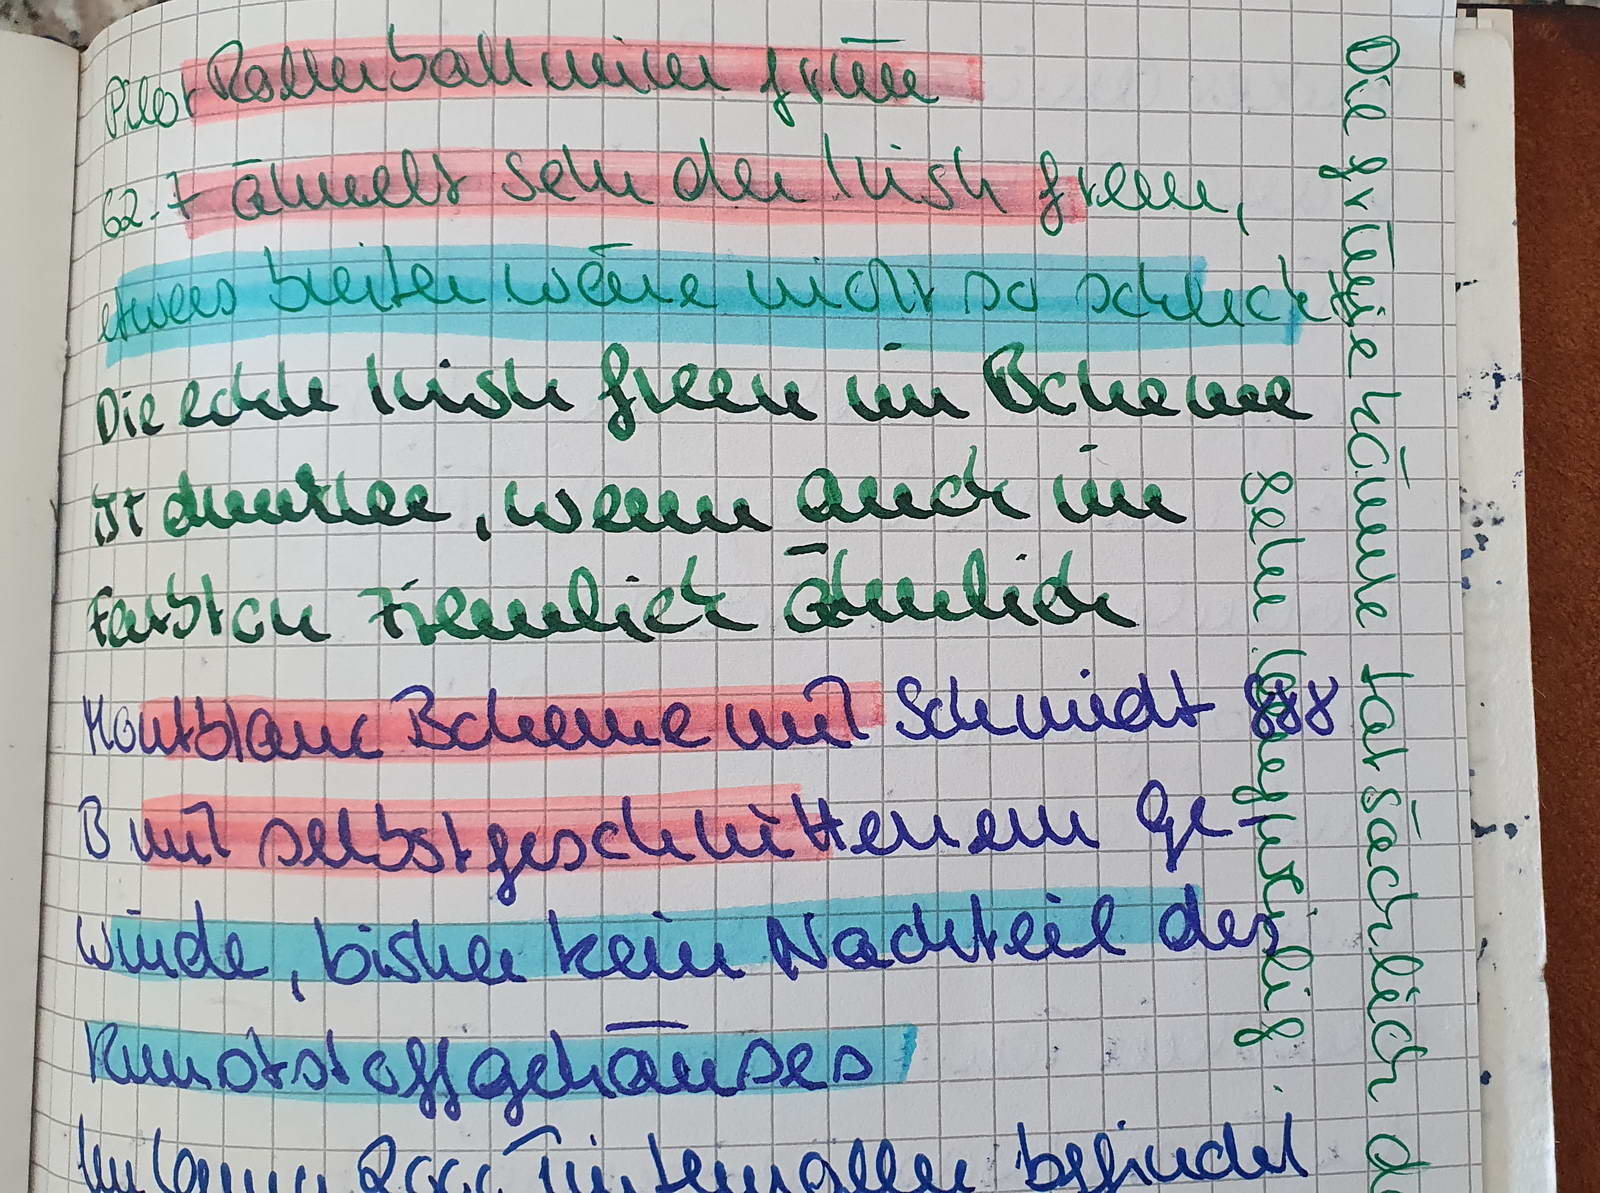 Pilot Rollerballmine grün
G2-7 ähnelt sehr der Irish green,
etwas breiter wäre nicht so schlecht
Die echte Irish green im Boheme
ist dunkler, wenn auch im
Farbton ziemlich ähnlich
Montblanc Boheme mit Schmidt 888
B mit selbstgeschnittenem Ge-
winde, bisher kein Nachteil des
Kunststoffgehäuses
Im Lamy 2000 Tintenroller befindet
Die grüne könnte tatsächlich
sehr langweilig.